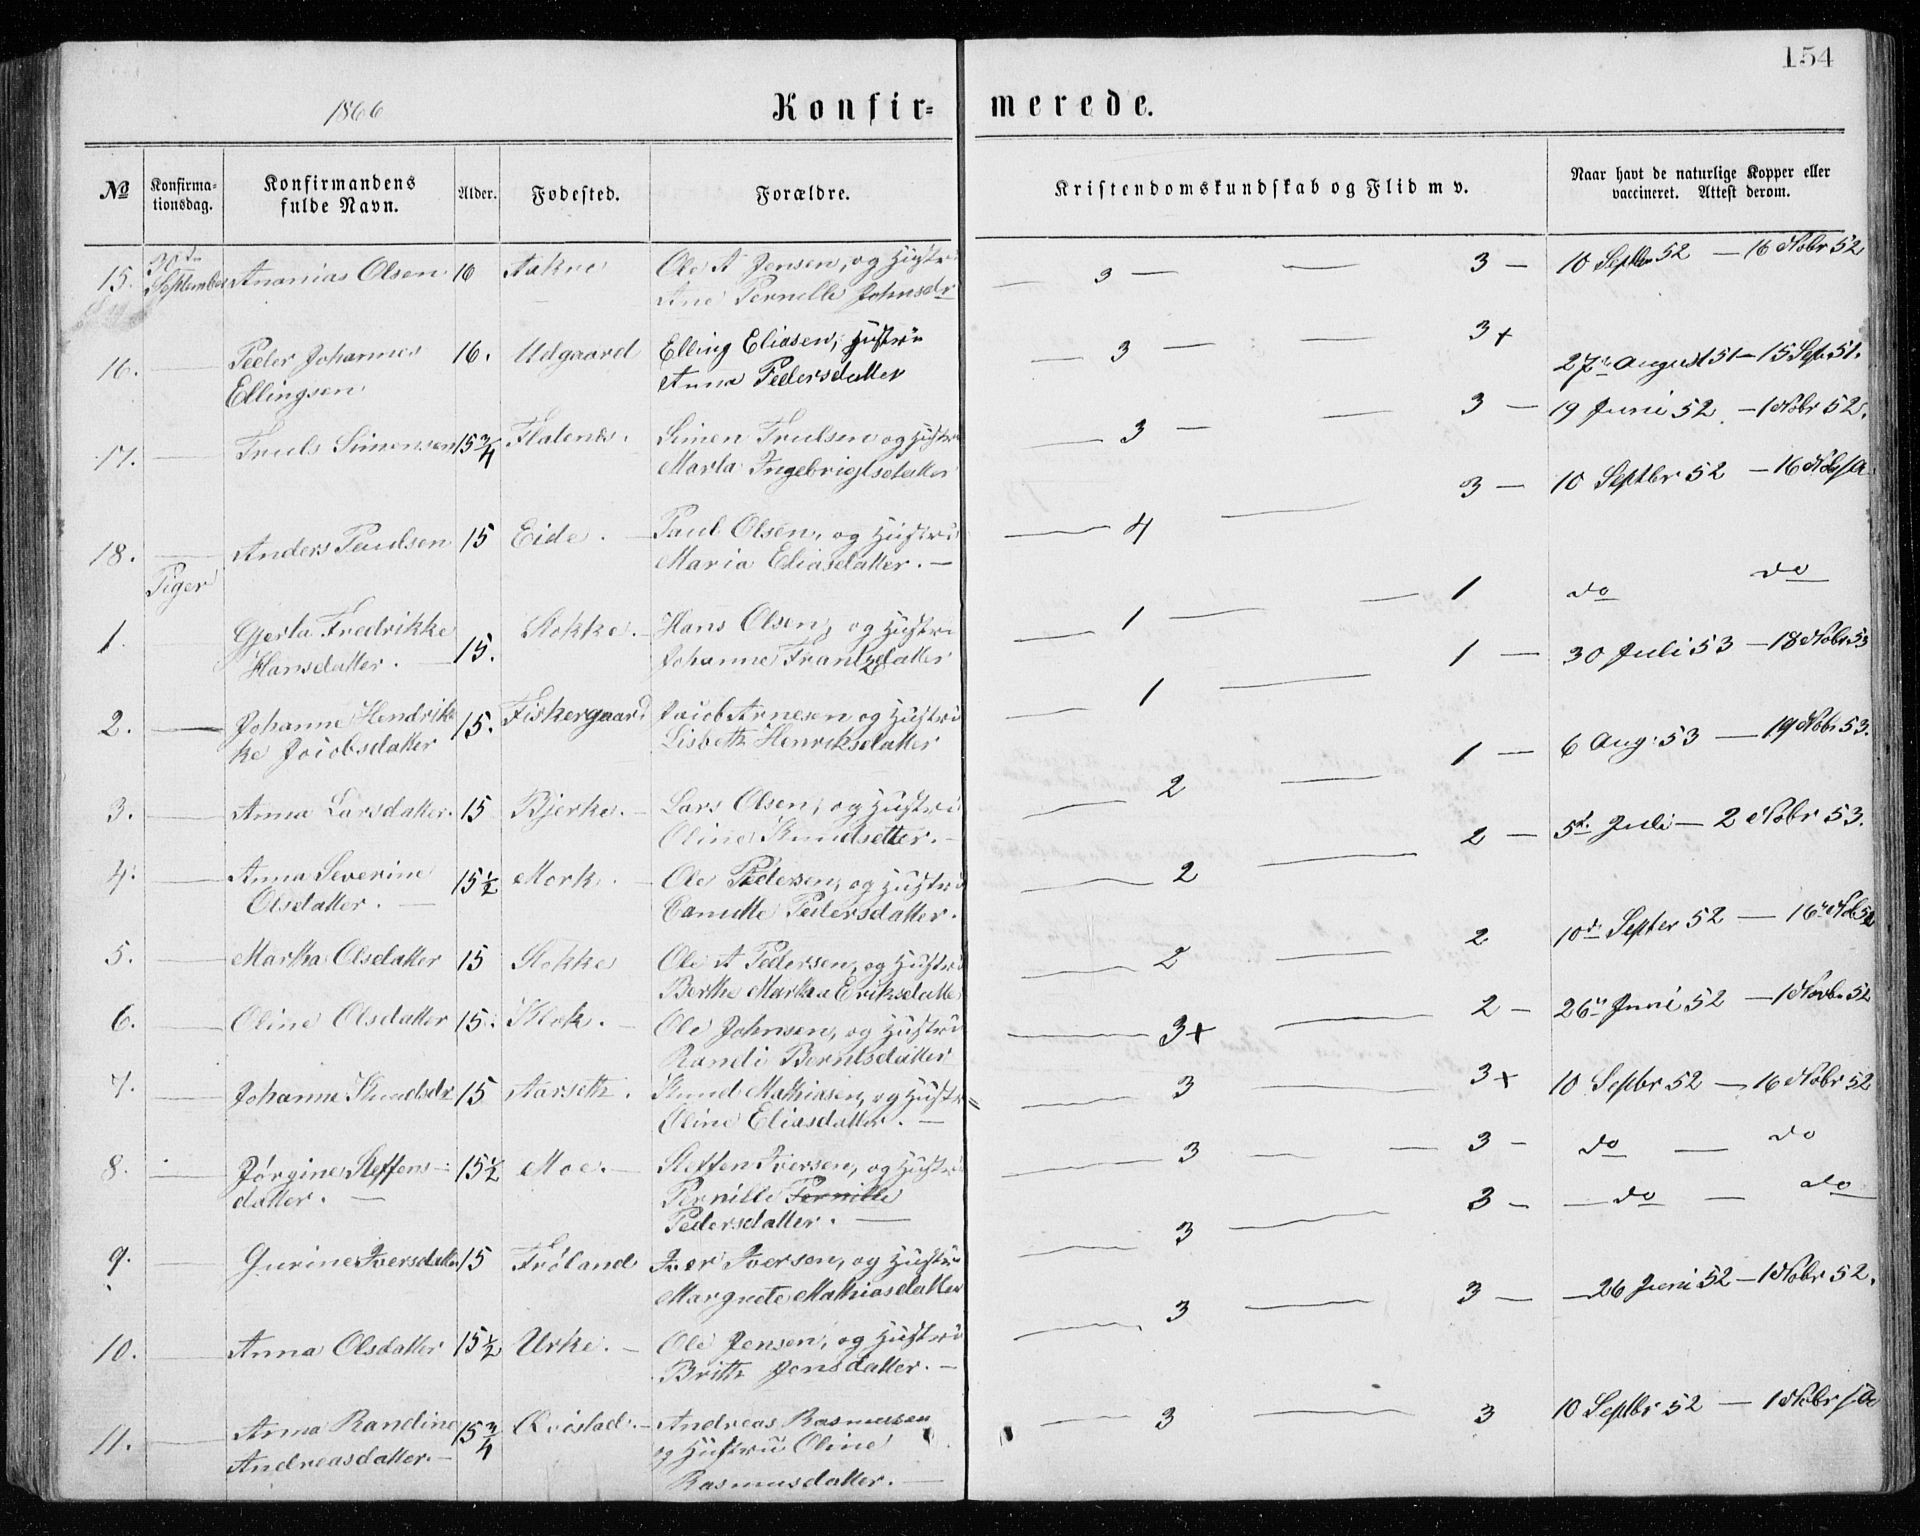 154
1866
Konfir= merede.
No
Konfirma=
tionsdag.
Konfirmandens
fulde Navn.
Alder.
Fødested.
Forældre.
Kristendomskundskab og Flid m v.
Naar havt de naturlige Kopper eller
vaccineret. Attest derom.
15. 30te September Ananias Olsen 16 Aakne Ole A Jensen, og Hustru 3 — — 3 — 10 Septbr 52 — 16 Nobr 52
Ane Pernille Johnsdr
16. — Peder Johannes 16. Udgaard Elling Eliasen, Hustru — 3 — — 3+ 27de August 51 — 15 Sep. 51.
Ellingsen Anna Pedersdatter
17. — Truls Simensen 15 3/4 Flatenes. Simen Trulsen og Hustru — 3 — — 3 — 19 Juni 52 — 1 Nobr 52.
Marta Ingebrigtsdatter
18. — Anders Paulsen 15 Eide. — Paul Olsen, og Hustru — 4 — 3 — 10 Septbr 52 — 16 Nobr
Maria Eliasdatter. —
Piger
1. Gjerta Fredrikke 15. Stokke. — Hans Olsen, og Hustru — 1 — — 1 do do
Hansdatter. — Johanne Frantzdatter
2. — Johanne Hendrik 15. Fiskergaard Jacob Arnesen og Hustru — 1 — 1 — 30 Juli 53 — 18 Nobr 53
ke Jacobsdatter Lisbeth Henriksdatter
3. — Anna Larsdatter. 15 Bjerke. — Lars Olsen, og Hustru — 2 — 1 — 6 Aug: 53 — 19 Nobr 53.
Oline Knudsetter. —
4. — Anna Severine 15 1/2 Mork. — Ole Pedersen, og Hustru — 2 — 2 — 5te Juli — 2 Nobr 53.
Olsdatter. — Canutte Pedersdatter.
5. — Martha Olsdatter 15 Stokke Ole A Pedersen, og Hustru — 2 — 2 10de Septer 52 — 16de Nob 52
Berthe Martha Eriksdatter
6. — Oline Olsdatter 15. Klok. — Ole Johnsen, og Hustru — 3+ — 2 — 26de Juni 52 — 1 Novbr 52
Randi Berntsdatter
7. — Johanne Knudsdr 15 Aarseth. Knud Mathiasen, og Hustru — 3 — 3+ 10 Sepbr 52 — 16 Nobr 52
Oline Eliasdatter. —
8. — Jørgine Steffens- 15 1/2 Moe. — Steffen Iversen, og Hustru — 3 — 3 — do — do
datter. — Pernille Pernille
Pedersdatter. —
9. — Gurine Iversdatter 15 Frøland Iver Iversen, og Hustru — 3 — 3 — — do — do
Margrete Mathiasdatter
10. — Anna Olsdatter 15 1/2 Urke. — Ole Jensen, og Hustru — 3 — 3 — — 26 Juni 52 — 1 Nobr 52.
Brithe Jensdatter. —
11. — Anna Randine 15 3/4 Qvistad. — Andreas Rasmusen — 3 — 3 10 Septbr 52 — 1 Nobr
Andreasdatter. — og Hustru Oline
Rasmusdatter. —